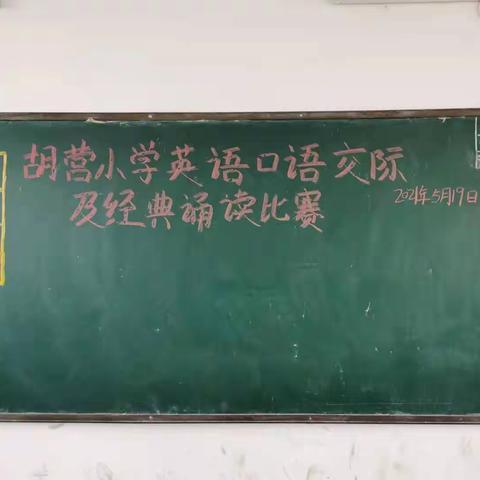 胡营小学英语口语交际
及经典诵读比赛
2021年5月19日